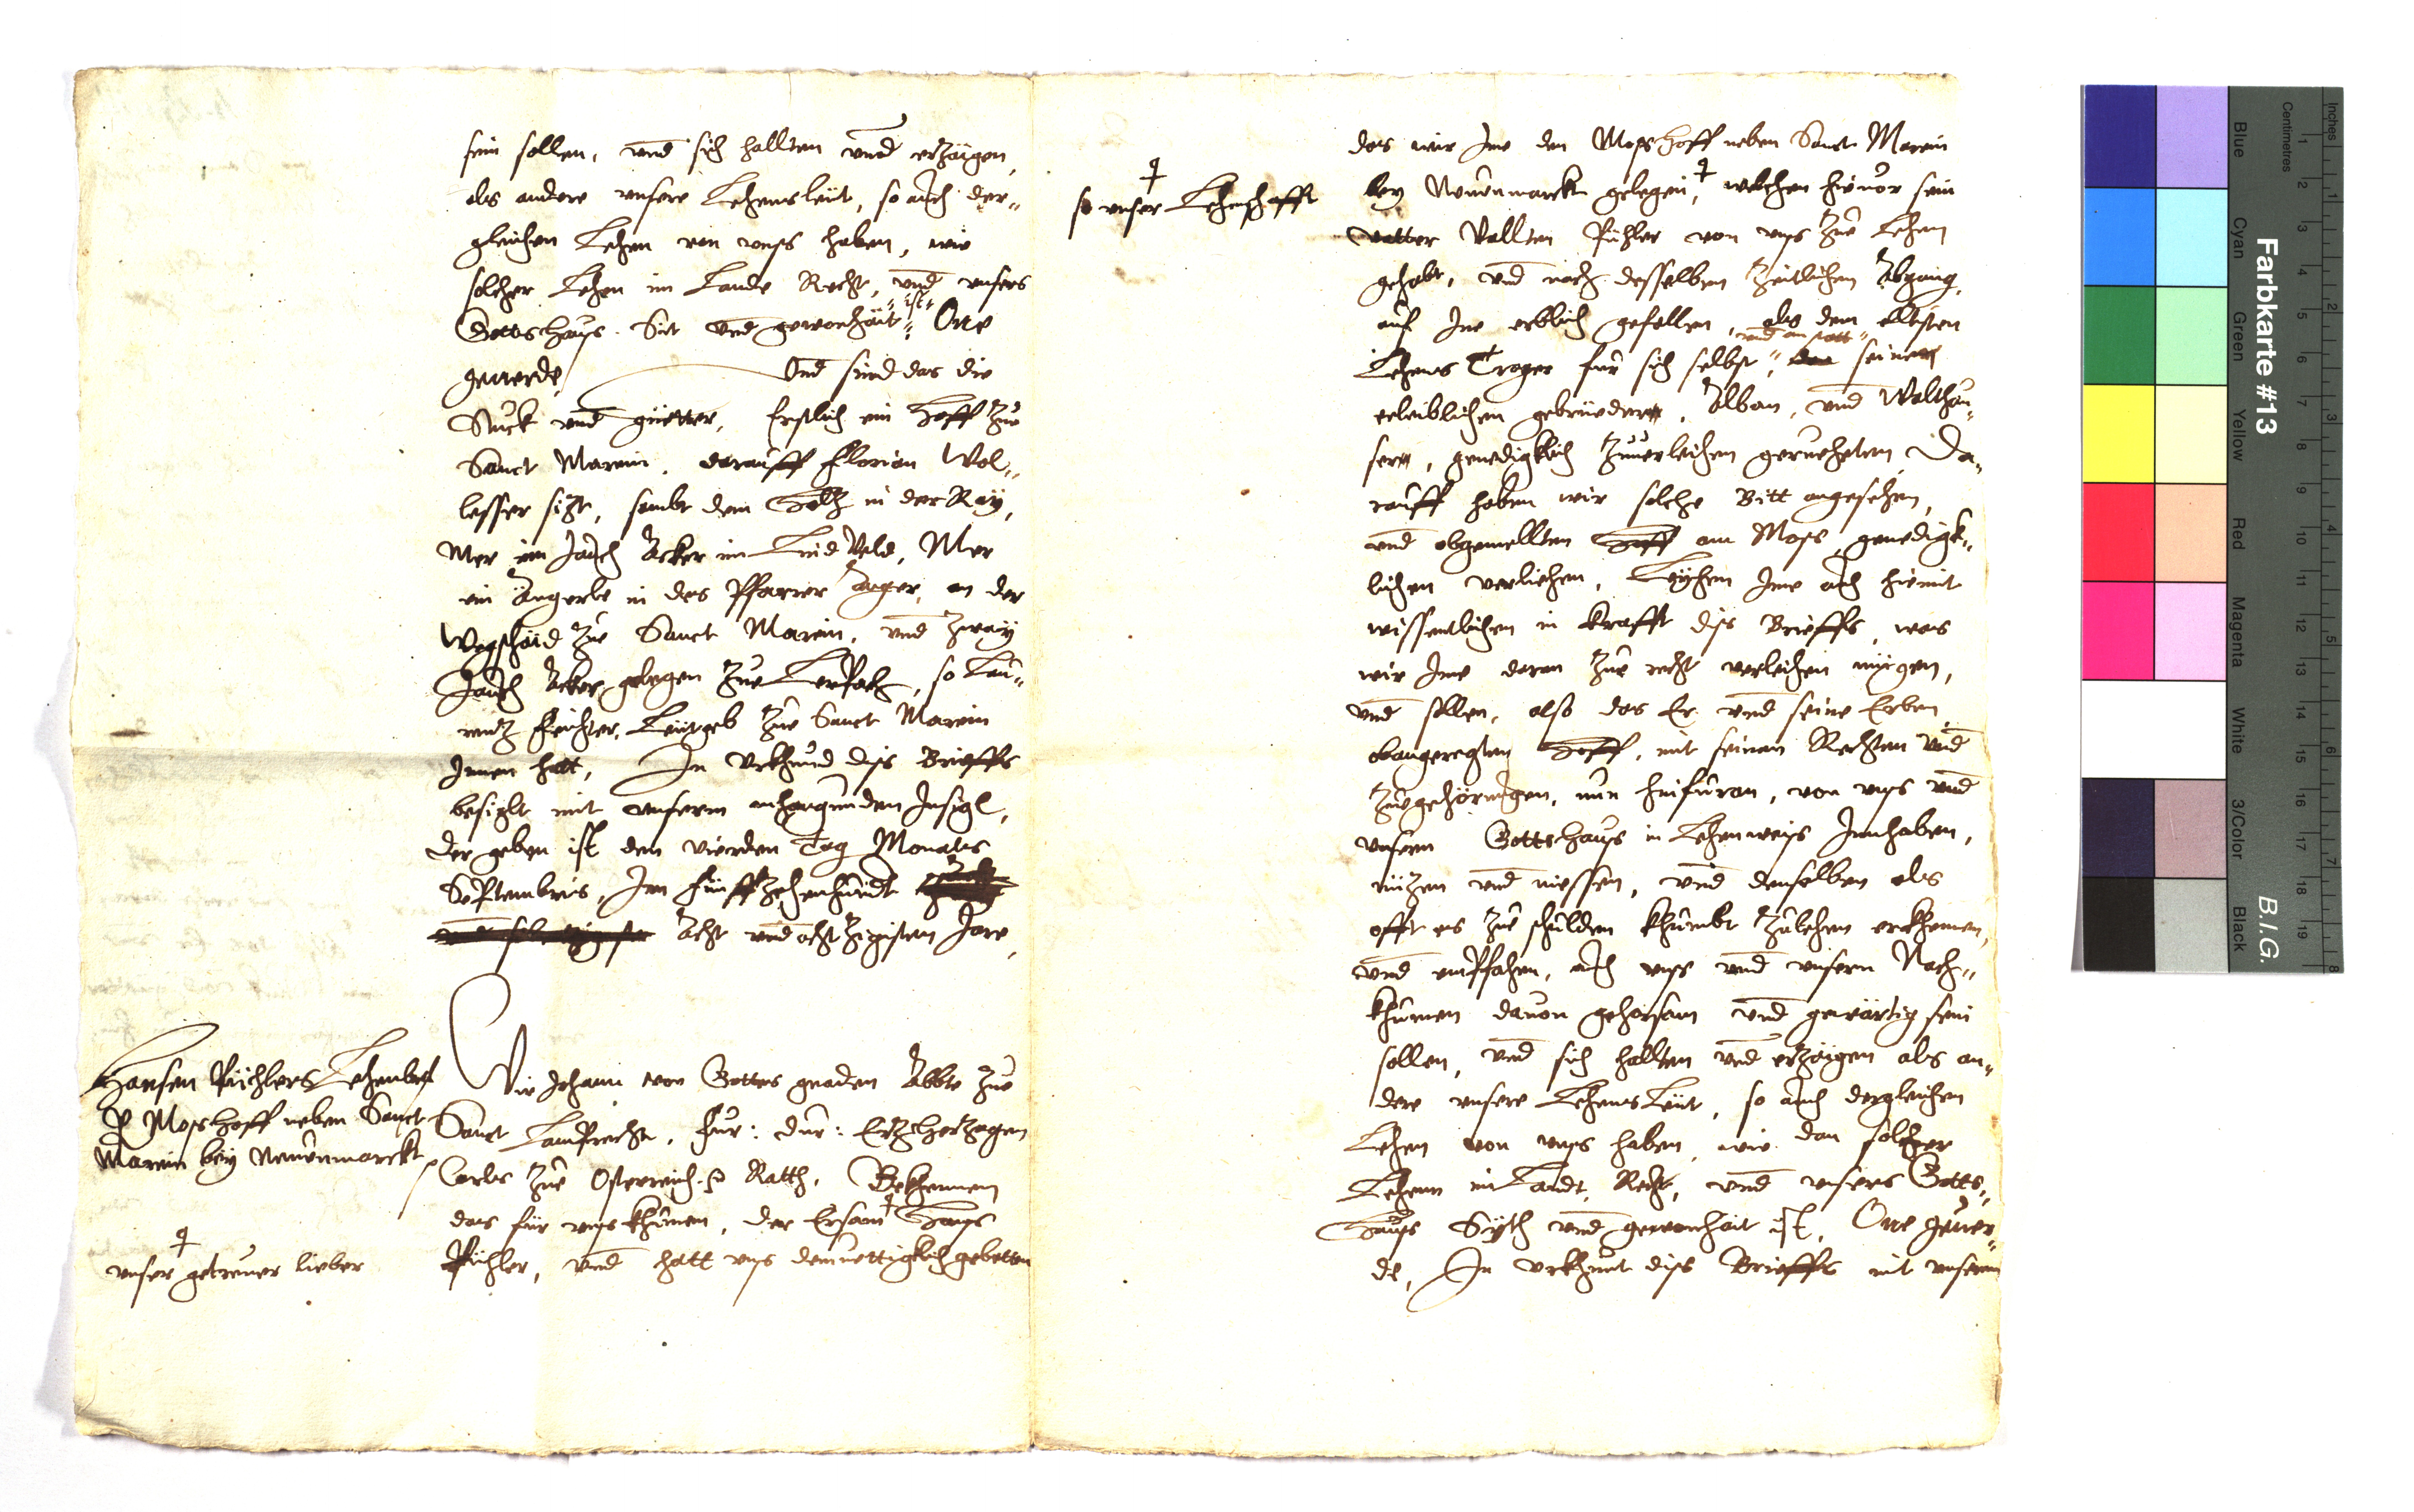 sein sollen, vnd sich hallten vnnd erzaigen,
als andere vnsere Lehensleüt, so auch der„
gleichen Lehen von vnns haben, wie
solcher Lehen im Lannde Recht, vnd vnsers
„ist„
Gottshauß Sit vnd gewonhait „ One
geuerde, Vnd sind das die
Stuck vnd güetter, Erstlich ein Hoff zue
Sanct Marein, darauff Florian Wol„
lesser sizt, sambt dem Holz in der Ray,
Mer ein Jauch Acker im Veld, Mer
ein Angerle in des Pfarrer anger, an der
Wegschaid zue Sanct Marein, vnd zway
Jauch Acker gelegen zue so Lau„
rentz Feichter, Leütgeb zue Sanct Marein
Innen hatt, In Vrkhund diss Brieffs
besiglt mit vnserm anhangunden Insigl,
Der geben ist den Vierden Tag Monats
Septembris, Im Fünffzehenhundt
Acht vnd achtzigisten Jare,
Hansen Püchlers Lehenbrf
P Moßhoff neben Sanct
Marein bey Newenmarckt
Wir Johann von Gottes gnaden Abbte zue
Sanct Lamprecht, Fur: Dur: Erzherzogen
Carls zue Osterreich p Ratth, Bekhennen
das für vnns khumen, der Ersam Hanns
Püchler, vnnd hatt vnns demuettigklich gebetten
vnser getreuer lieber
das wir Ime den Moßhoff neben Sanct Marein
so vnser Lehenschafft
bey Newenmarckt gelegen, welchen hieuor sein
vatter Vallten Püchler von vnns zue Lehen
gehabt, vnd nach desselben zeitlichen Abgang,
auf Ine erblich gefallen, als dem elltisten
„vnd anstatt„
Lehens Trager für sich selbst „ seiner
eeleiblichen gebrüeder, Alban, vnd Walthau„
sern, genedigklich zuuerleihen geruehetten, Da„
rauff haben wir solche Bitt angesehen,
vnd obgemellten Hoff am Moss, genedigk„
lichen verliehen, Leyhen Ime auch hiemit
wissentlichen in krafft diss Brieffs, was
wir Ime daran zue recht verleihen mügen,
vnd sollen, also das Er vnd seine Erben
obangeregten Hoff, mit seinen Rechten vnd
zuegehörungen, nun hinfüran, von vnns vnd
vnserm Gottshauß in Lehenweiß Innhaben,
nüzen vnd niessen, vnd denselben als
offt es zue schulden khumbt zulehen erkhennen,
vnd emphahen, auch vnns vnd vnsern Nach„
khumen dauon gehorsam vnd gewärtig sein
sollen, vnd sich hallten vnd erzaigen als an„
dere vnsere LehensLeüt, so auch dergleichen
Lehen von vnns haben, wie dan solcher
Lehenn im Landt, Recht, vnnd vnsers Gotts„
Hauß Syth vnd gewonhait ist, One geuer„
de, In vrkhunt diss Brieffs mit vnserm
Farbkarte #13
B.I.G.
Inches
Centimetres
Blue
Cyan
Green
Yellow
Red
Magenta
White
3/Color
Black